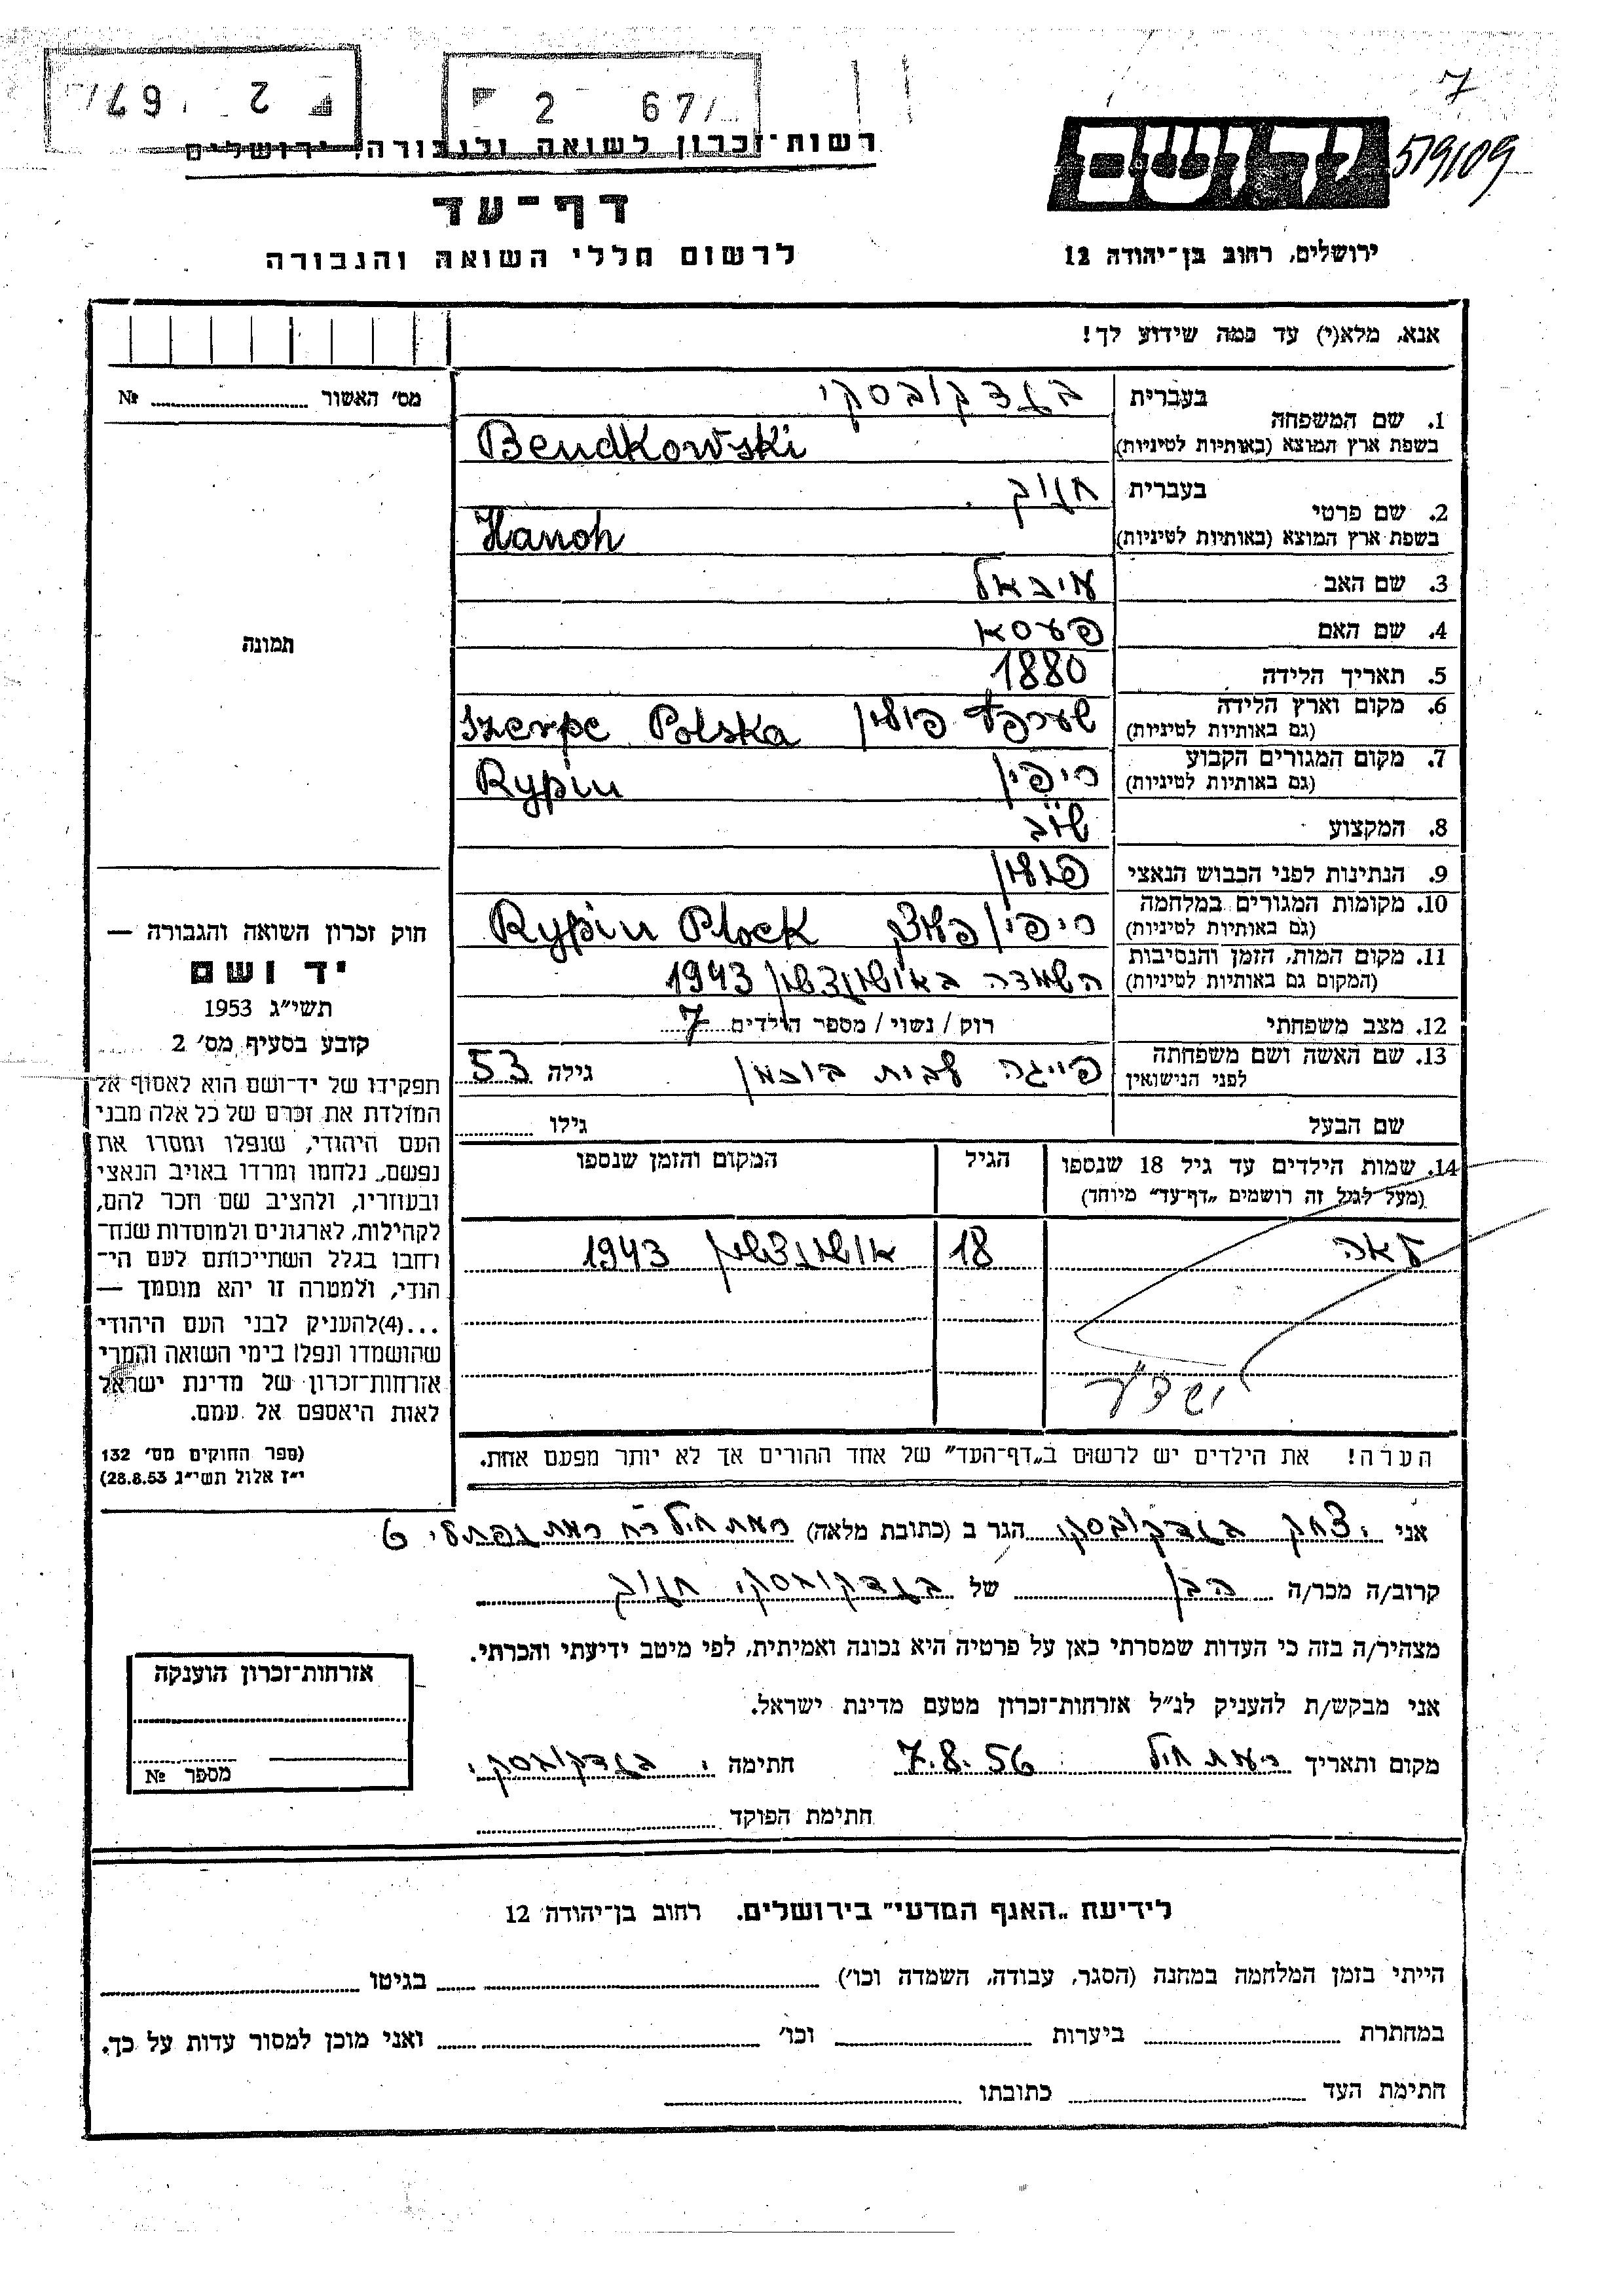 7
2 67
2 67
579109
רשות־זכרון לשואה ולגבורה, ירושלים
דף־עד
לרשום חללי השואה והגבורה
ירושלים, רחוב בן־יהודה 12
אנא, מלא(י) עד כמה שידוע לך!
מס' האשור № 
1. שם המשפחה
בעברית בנדקובסקי
בשפת ארץ המוצא (באותיות לטיניות) Bendkowski
2. שם פרטי
בעברית חנוך
בשפת ארץ המוצא (באותיות לטיניות) Hanoh
3. שם האב מיכאל
4. שם האם פעסא
5. תאריך הלידה 1880
6. מקום וארץ הלידה שערפץ פולין Szerpc Polska
(גם באותיות לטיניות)
7. מקום המגורים הקבוע ריפין Rypin
(גם באותיות לטיניות)
8. המקצוע שו"ב
9. הנתינות לפני הכבוש הנאצי פולין
10. מקומות המגורים במלחמה ריפין פלוצק Rypin Plock
(גם באותיות לטיניות)
11. מקום המות, הזמן והנסיבות השמדה באושווינצ'ין 1943
(המקום גם באותיות לטיניות)
12. מצב משפחתי רוק / נשוי / מספר הילדים 7
13. שם האשה ושם משפחתה פייגה לבית בוכמן גילה 53
לפני הנישואין
שם הבעל גילו
14. שמות הילדים עד גיל 18 שנספו הגיל המקום והזמן שנספו
(מעל לגיל זה רושמים „דף־עד" מיוחד)
לאה 18 1943
הערה! את הילדים יש לרשום ב„דף־העד" של אחד ההורים אך לא יותר מפעם אחת.
תמונה
חוק זכרון השואה והגבורה —
יד ושם
תשי"ג 1953
קובע בסעיף מס' 2
תפקידו של יד־ושם הוא לאסוף אל
המולדת את זכרם של כל אלה מבני
העם היהודי, שנפלו ומסרו את
נפשם, נלחמו ומרדו באויב הנאצי
ובעוזריו, ולהציב שם וזכר להם,
לקהילות, לארגונים ולמוסדות שנח־
רחבו בגלל השתייכותם לעם הי־
הודי, ולמטרה זו יהא מוסמך —
...(4)להעניק לבני העם היהודי
שהושמדו ונפלו בימי השואה והמרי
אזרחות־זכרון של מדינת ישראל
לאות היאספם אל עמם.
(ספר החוקים מס' 132
י"ז אלול תשי"ג 28.8.53)
אני יצחק בנדקובסקי הגר ב (כתובת מלאה) רמת חיל רח רמת נפתלי 6
קרוב/ה מכר/ה הבן של בנדקובסקי חנוך
מצהיר/ה בזה כי העדות שמסרתי כאן על פרטיה היא נכונה ואמיתית, לפי מיטב ידיעתי והכרתי.
אני מבקש/ת להעניק לנ"ל אזרחות־זכרון מטעם מדינת ישראל.
מקום ותאריך רמת חיל 7.8.56 חתימה י. בנדקובסקי
חתימת הפוקד
אזרחות־זכרון הוענקה
מספר №
לידיעת „האגף המדעי" בירושלים, רחוב בן־יהודה 12
הייתי בזמן המלחמה במחנה (הסגר, עבודה, השמדה וכו') בגיטו
במחתרת ביערות וכו' ואני מוכן למסור עדות על כך.
חתימת העד כתובתו